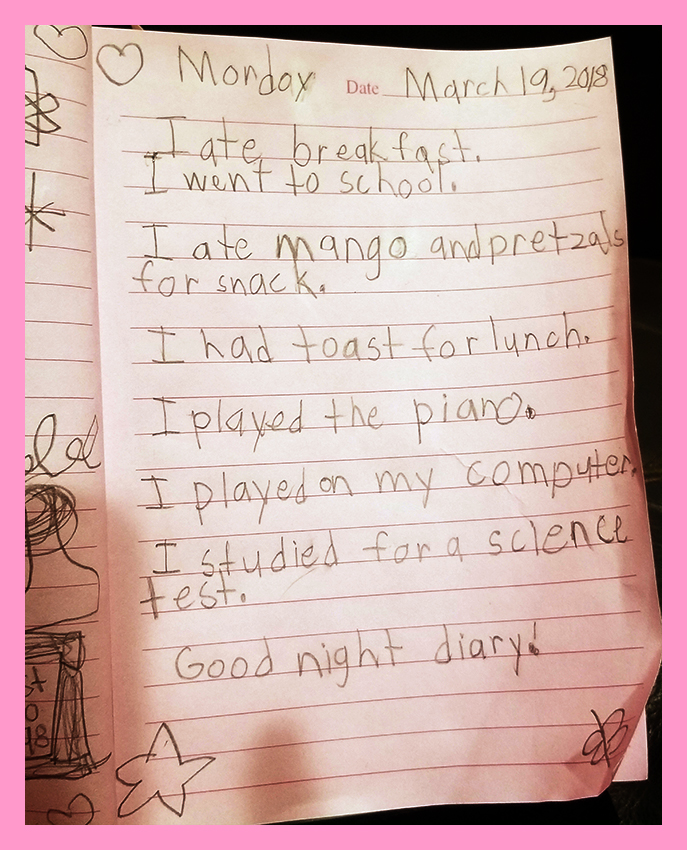 Monday Date March 19, 2018
I ate breakfast.
I went to school.
I ate mango and pretzals
for snack.
I had toast for lunch.
I played the piano.
I played on my computer.
I studied for a science
test.
Good night diary!